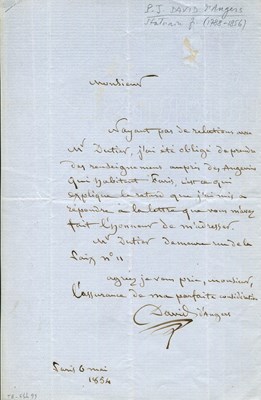 P. J. DAVID d'Angers
Statuaire f. (1788-1856)
Monsieur
N'ayant pas de relations avec
Mr Dutier, j'ai été obligé de prendre
des renseignemens auprès des Angevins
qui habitent Paris, c'est ce qui
explique le retard que j'ai mis a
répondre à la lettre que vous m'avez
fait l'honneur de m'adresser.
Mr Dutier demeure rue de la
Paix no 11
agréez je vous prie, monsieur,
l'assurance de ma parfaite considération
David d'Angers
Paris 6 mai
1854